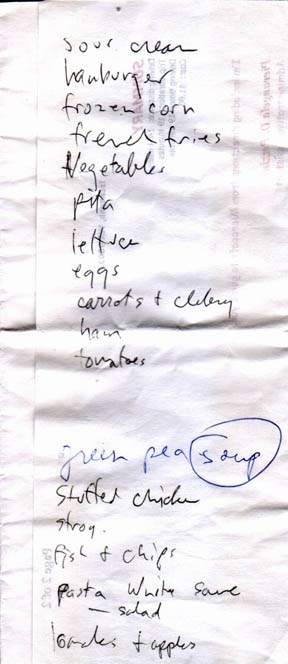 sour cream
hamburger
frozen corn
french fries
Vegetables
pita
lettuce
eggs
carrots + celery
ham
tomatoes
green pea soup
Stuffed chicken
strog.
fish & chips
pasta White Sauce
— salad
+ apples
Page 2 of 2